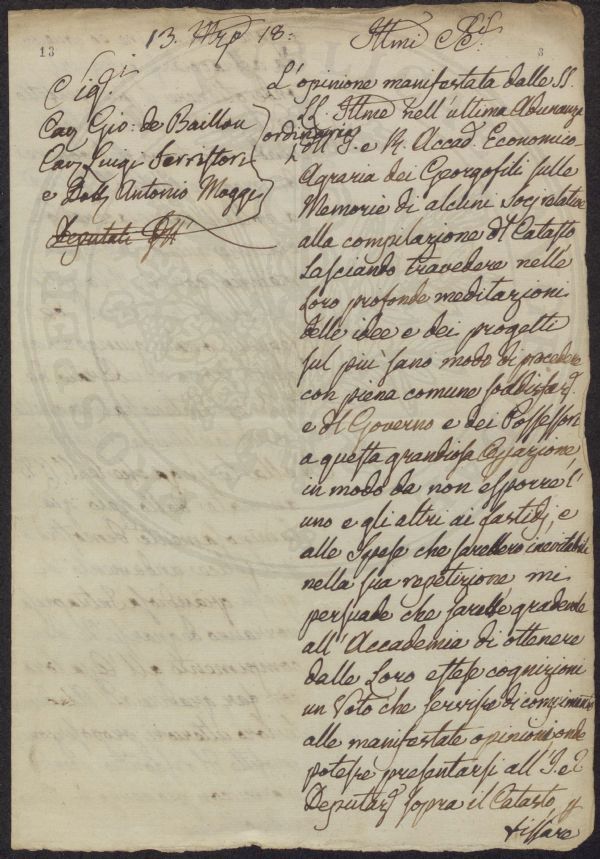 13. 18:
Illmi
13
8
Sigri
Cav Gio: de Baillou
Cav Luigi Serristori
e Dott Antonio Moggi
ordinario
Deputati
L'opinione manifestata dalle SS.
LL. Illme nell'ultima Adunanza
dell'I. e R. Accad. Economico-
Agraria dei Georgofili sulle
Memorie di alcuni Socj relative
alla compilazione del Catasto
Lasciando travedere nelle
Loro profonde meditazioni
delle idee e dei progetti
sul più sano modo di procedere
con piena comune soddisfaz.
e del Governo e dei Possessori
a questa grandiosa
in modo da non esporre l'
uno e gli altri ai fastidj, e
alle Spese che sarebbero inevitabili
nella sua repetizione mi
persuade che sarebbe gradevole
all'Accademia di ottenere
dalle Loro estese cognizioni
un Voto che servisse di compimento
alle manifestate opinioni onde
potesse presentarsi all'I. e R.
Deputaz. sopra il Catasto
fissare